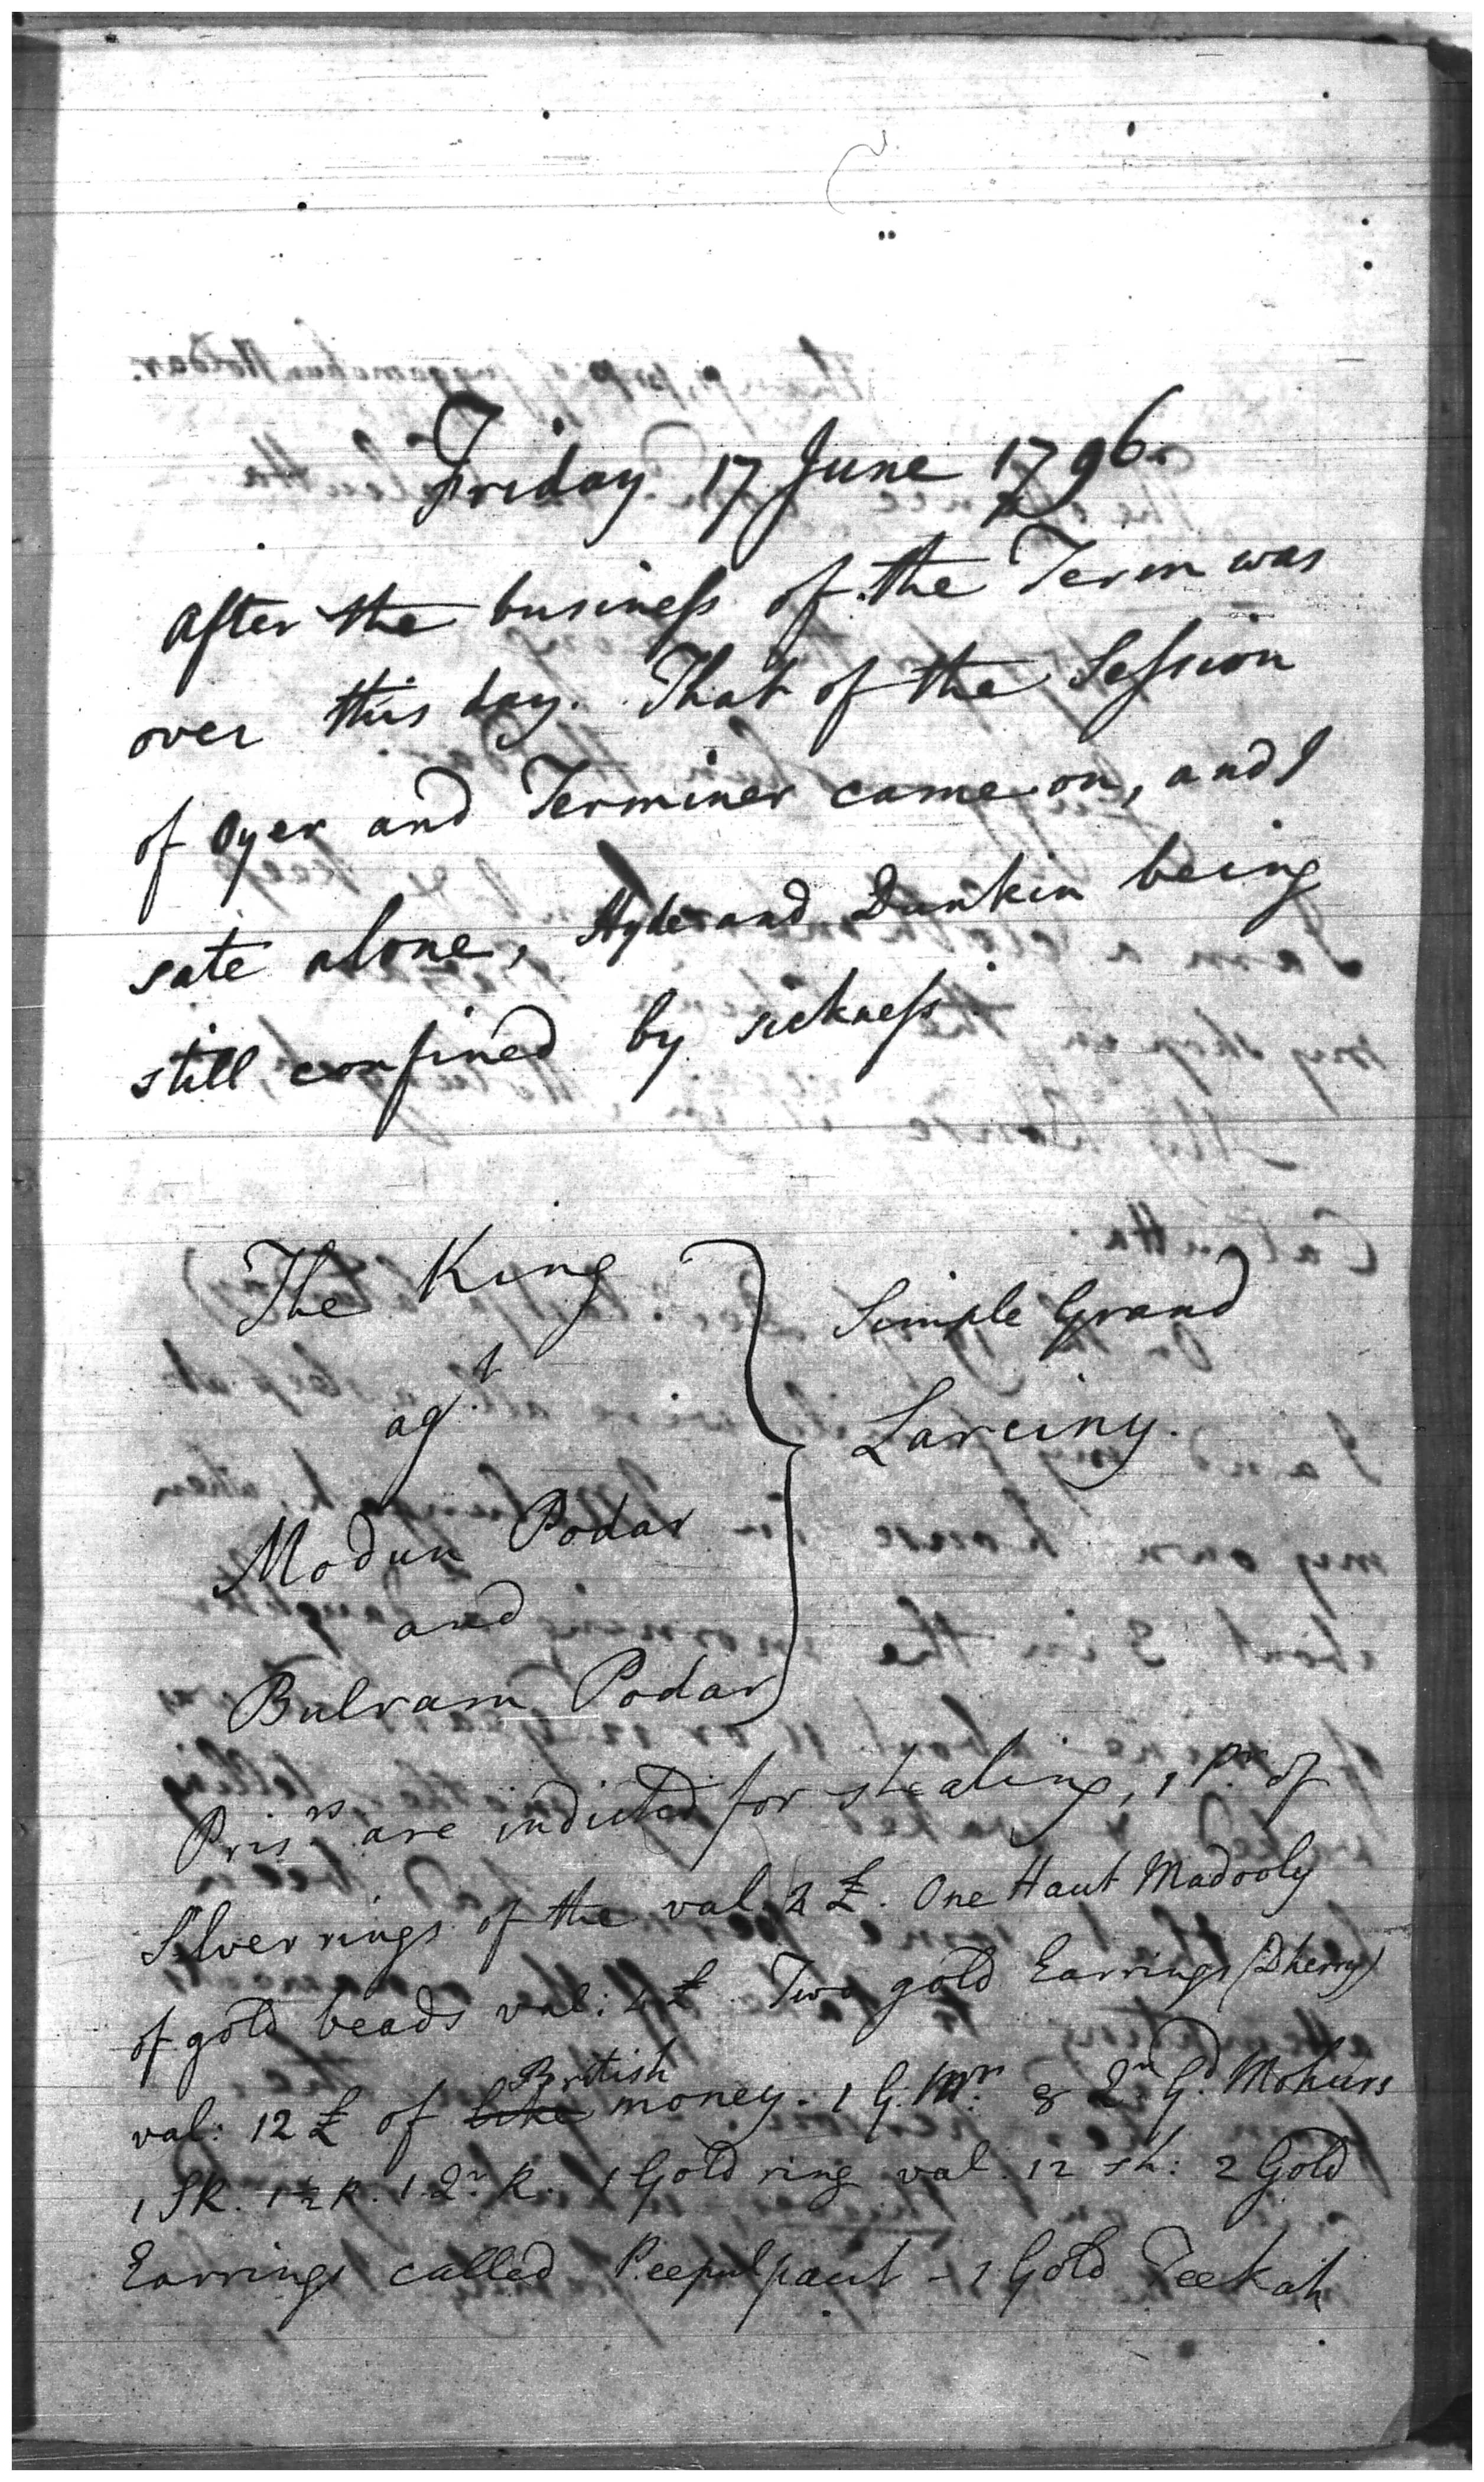 Friday 17 June 1796.
After the business of the Term was
over this day. That of the Session
of Oyer and Terminer came on, and I
sate alone, Hyde and Dunkin being
still confined by sickness.
The King
agt
Modun Podar
and
Bulram Podar
Simple Grand
Larciny.
Prisrs are indicted for stealing, 1 pr. of
Silver rings of the val. 2 £. One Haut Madooly
of gold beads val: 4 £. Two gold Earrings (Dherry)
val: 12 £ of like British money. 1 G. Mr. & 2 Gd. Mohurs
1 SR. 1 ½ R. 1 Qr. R. 1 Gold ring val. 12 sh: 2 Gold
Earrings called Peepulpaut - 1 Gold Teekah